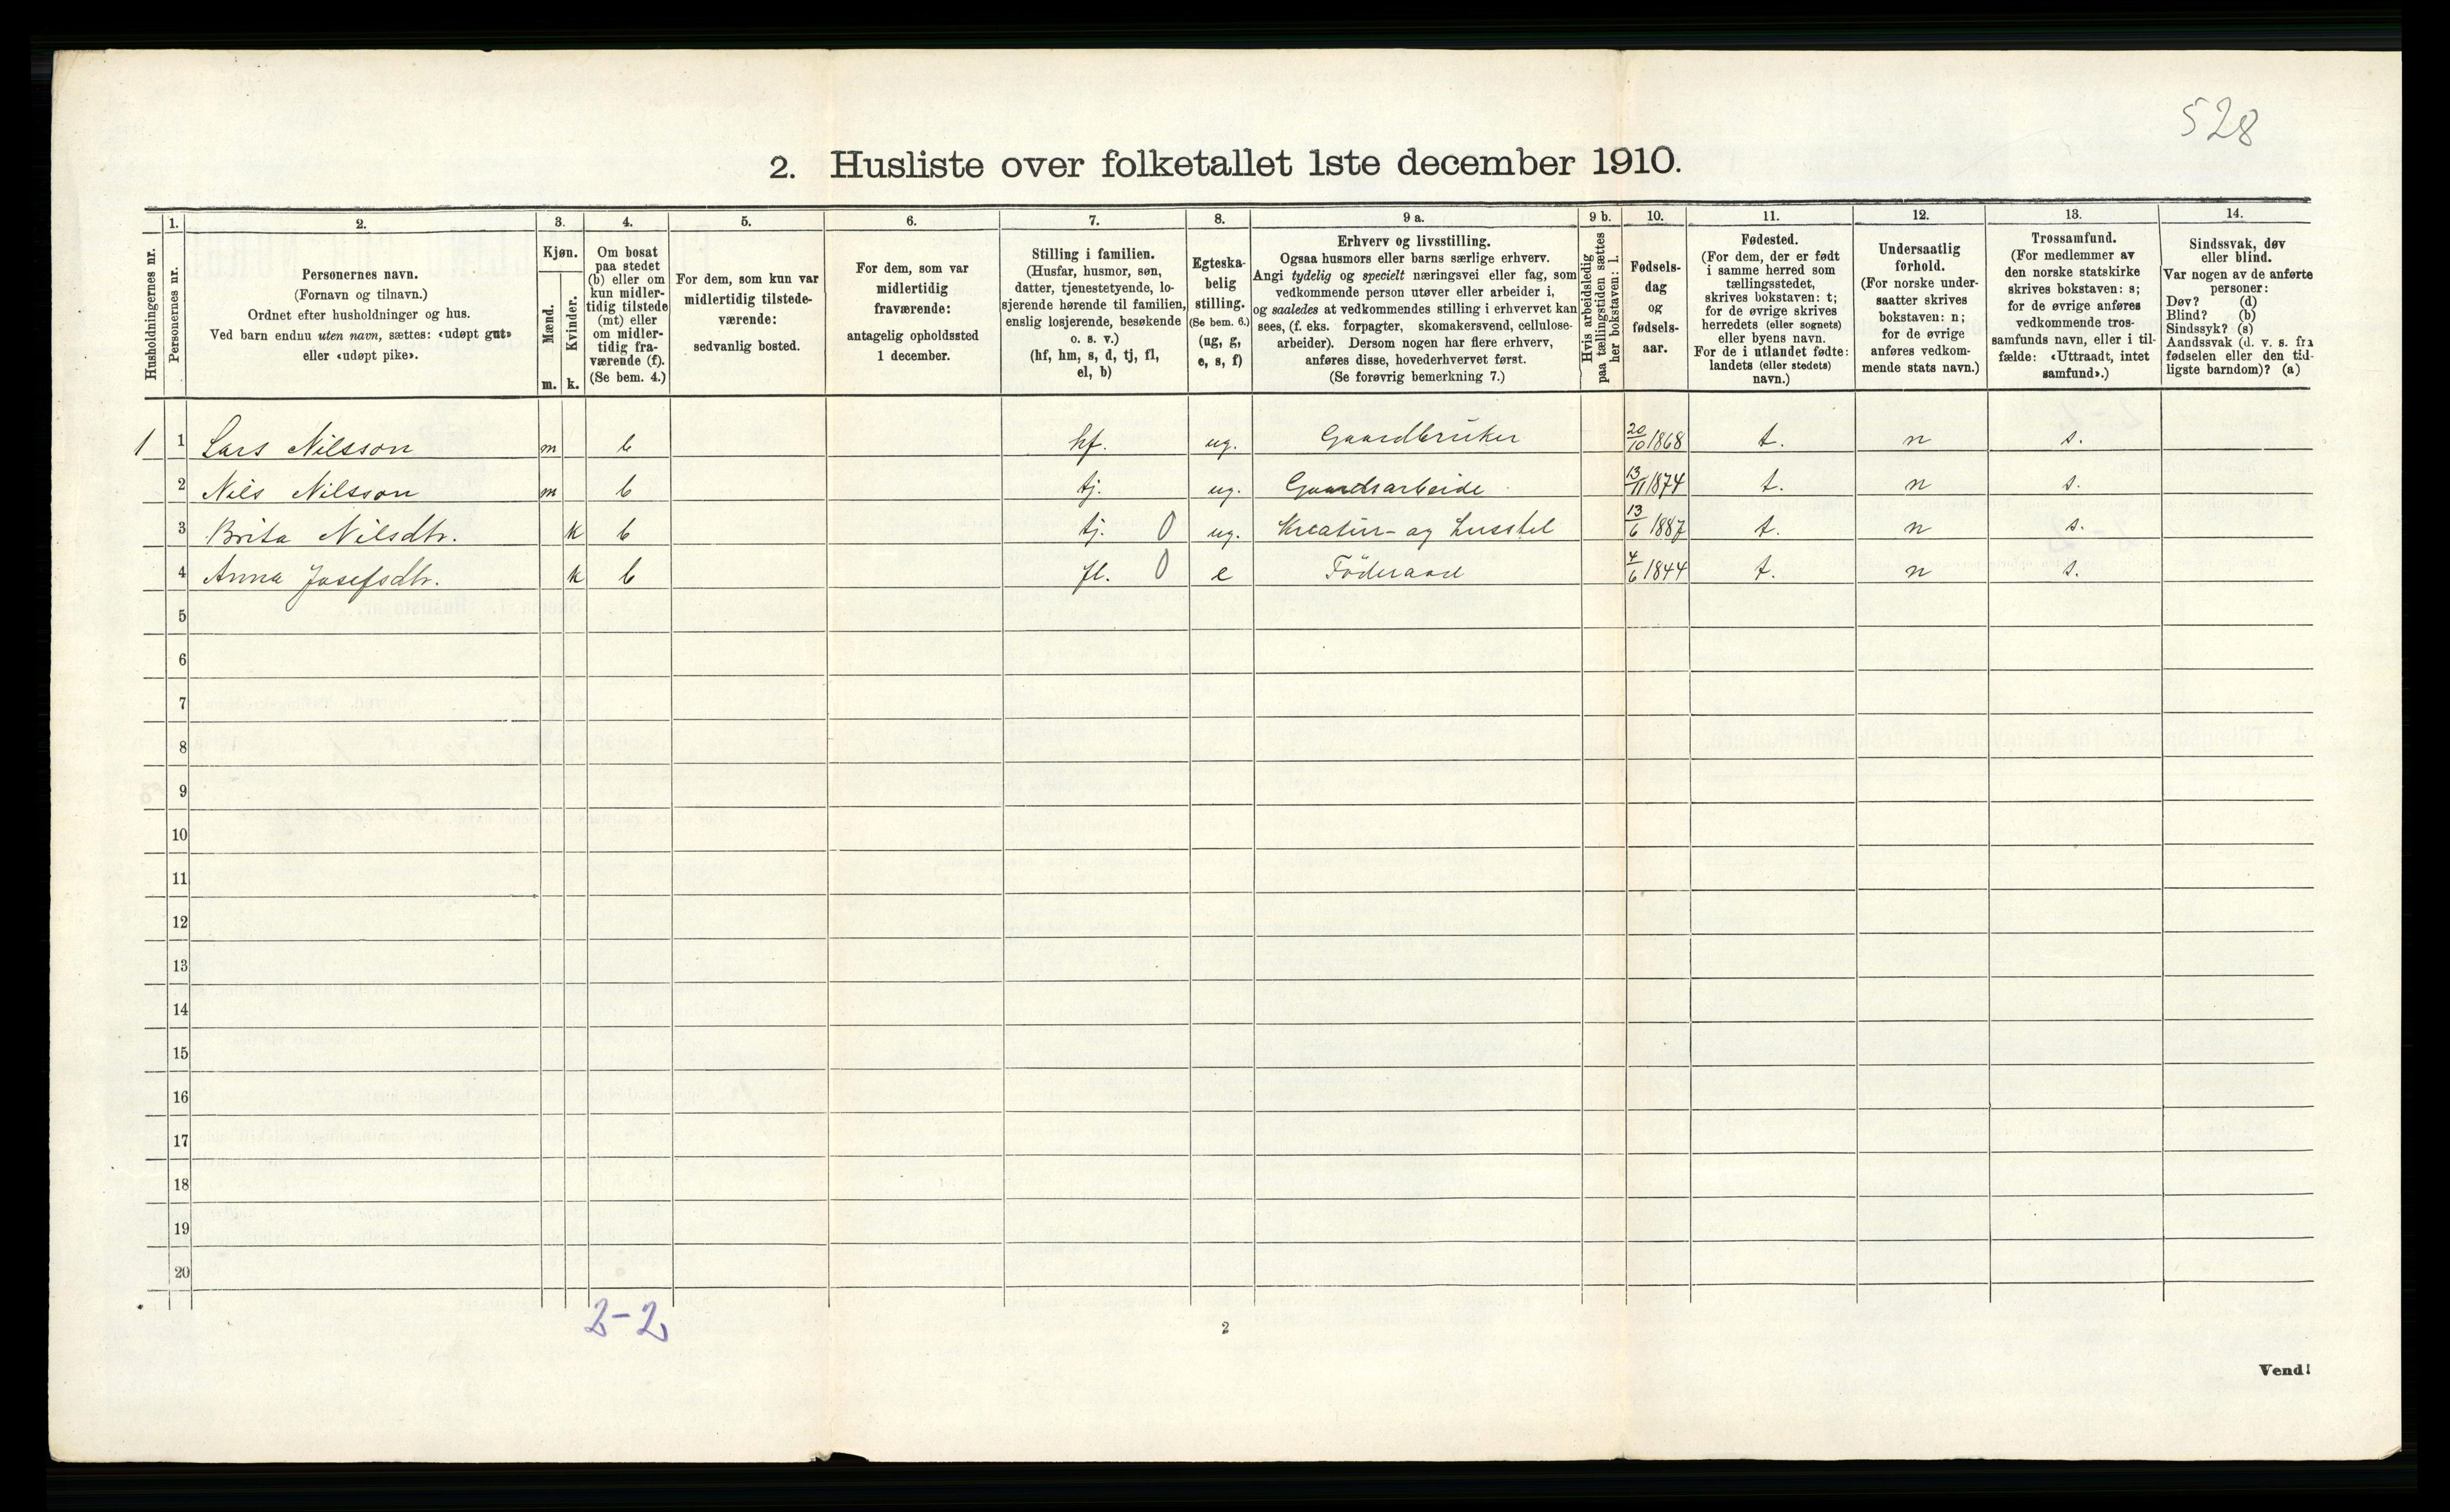 528
2. Husliste over folketallet 1ste december 1910.
Husholdningernes nr.
1.
Personernes nr.
2.
Personernes navn.
(Fornavn og tilnavn.)
Ordnet efter husholdninger og hus.
Ved barn endnu uten navn, sættes: «udøpt gut»
eller «udøpt pike».
3.
Kjøn.
Mænd.
Kvinder.
m. k.
4.
Om bosat
paa stedet
(b) eller om
kun midler-
tidig tilstede
(mt) eller
om midler-
tidig fra-
værende (f).
(Se bem. 4.)
5.
For dem, som kun var
midlertidig tilstede-
værende:
sedvanlig bosted.
6.
For dem, som var
midlertidig
fraværende:
antagelig opholdssted
1 december.
7.
Stilling i familien.
(Husfar, husmor, søn,
datter, tjenestetyende, lo-
sjerende hørende til familien,
enslig losjerende, besøkende
o. s. v.)
(hf, hm, s, d, tj, fl,
el, b)
8.
Egteska-
belig
stilling.
(Se bem. 6.)
(ug, g,
e, s, f)
9 a.
Erhverv og livsstilling.
Ogsaa husmors eller barns særlige erhverv.
Angi tydelig og specielt næringsvei eller fag, som
vedkommende person utøver eller arbeider i,
og saaledes at vedkommendes stilling i erhvervet kan
sees, (f. eks. forpagter, skomakersvend, cellulose-
arbeider). Dersom nogen har flere erhverv,
anføres disse, hovederhvervet først.
(Se forøvrig bemerkning 7.)
9 b.
Hvis arbeidsledig
paa tællingstiden sættes
her bokstaven: l.
10.
Fødsels-
dag
og
fødsels-
aar.
11.
Fødested.
(For dem, der er født
i samme herred som
tællingsstedet,
skrives bokstaven: t;
for de øvrige skrives
herredets (eller sognets)
eller byens navn.
For de i utlandet fødte:
landets (eller stedets)
navn.)
12.
Undersaatlig
forhold.
(For norske under-
saatter skrives
bokstaven: n;
for de øvrige
anføres vedkom-
mende stats navn.)
13.
Trossamfund.
(For medlemmer av
den norske statskirke
skrives bokstaven: s;
for de øvrige anføres
vedkommende tros-
samfunds navn, eller i til-
fælde: «Uttraadt, intet
samfund».)
14.
Sindssvak, døv
eller blind.
Var nogen av de anførte
personer:
Døv? (d)
Blind? (b)
Sindssyk? (s)
Aandssvak (d. v. s. fra
fødselen eller den tid-
ligste barndom)? (a)
1 1 Lars Nilsson m b hf. ug. Gaardbruker 20/10 1868 t. n s.
2 Nils Nilsson m b tj. ug. Gaardsarbeide 13/11 1874 t. n s.
3 Brita Nilsdtr. k b tj. 0 ug. Kreatur- og husstel 13/6 1887 t. n s.
4 Anna Josefsdtr. k b fl. 0 e Föderaad 4/6 1844 t. n s.
5
6
7
8
9
10
11
12
13
14
15
16
17
18
19
20
2-2
2
Vend!